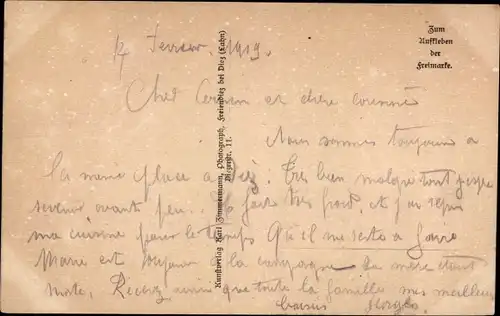 17 Fevrier 1919.
Zum
Aufkleben
der
Freimarke.
Cher Cousin et chère cousine
Nous sommes toujours a
la même place a Diez. Très bien malgré tout j'espère
avant peu. fait très froid, et j'ai repris
ma cuisine pour le temps qu'il me reste a faire
Marie est toujours la campagne la mère étant
morte, Recevez ainsi que toute la famille mes meilleurs
baisers Georges
Kunstverlag Karl Zimmermann, Photograph, Freiendiez bei Diez (Lahn)
11.